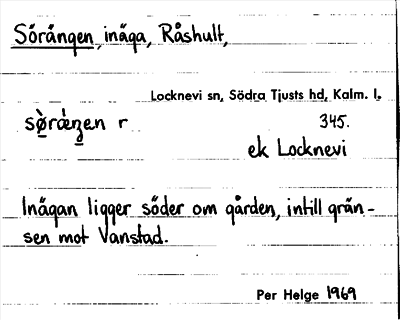 Sörängen, inäga, Råshult,
Locknevi sn, Södra Tjusts hd, Kalm. l.
345.
ek Locknevi
Inägan ligger söder om gården, intill grän-
sen mot Vanstad.
Per Helge 1969